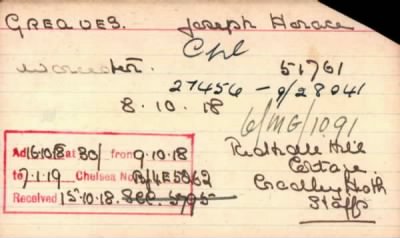 GREAVES. Joseph Horace
Cpl
Worcester. 51761
27456 - 9/28041
8.10.18
6/MG/1091
Redhall Hill
Cottage
Cradley Hth
Staffs
Ad 16.10.18 at 30/ from 9.10.18
to 7.1.19 Chelsea No. B/4E5862
Received 15.10.18. 866. 5795